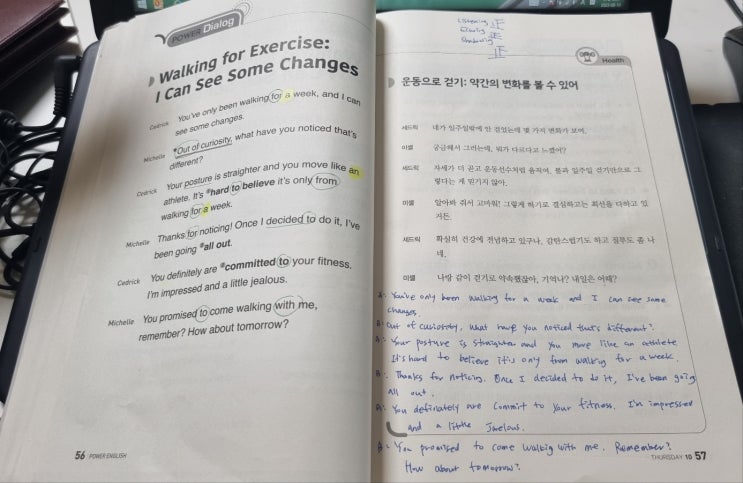 POWER Dialog
Walking for Exercise:
I Can See Some Changes
Cedrick You've only been walking for a week, and I can
see some changes.
Michelle *Out of curiosity, what have you noticed that's
different?
Cedrick Your posture is straighter and you move like an
athlete. It's *hard to believe it's only from
walking for a week.
Michelle Thanks for noticing! Once I decided to do it, I've
been going *all out.
Cedrick You definitely are *committed to your fitness.
I'm impressed and a little jealous.
Michelle You promised to come walking with me,
remember? How about tomorrow?
56 POWER ENGLISH
Listening 正
正
Shadowing 正
Health
운동으로 걷기: 약간의 변화를 볼 수 있어
세드릭 네가 일주일밖에 안 걸었는데 몇 가지 변화가 보여.
미셸 궁금해서 그러는데, 뭐가 다르다고 느꼈어?
세드릭 자세가 더 곧고 운동선수처럼 움직여. 불과 일주일 걷기만으로 그
렇다는 게 믿기지 않아.
미셸 알아봐 줘서 고마워! 그렇게 하기로 결심하고는 최선을 다하고 있
거든.
세드릭 확실히 건강에 전념하고 있구나. 감탄스럽기도 하고 질투도 좀 나
네.
미셸 나랑 같이 걷기로 약속했잖아, 기억나? 내일은 어때?
A: You've only been walking for a week and I can see some
changes.
B: Out of curiosity, what have you noticed that's different?
A: Your posture is straighter and you move like an athlete
It's hard to believe it's only from walking for a week.
B: Thanks for noticing. Once I decided to do it, I've been going
all out.
A: You definately are commit to your fitness. I'm impressed
and a little Jwelous.
B: You promised to come walkig with me. Remember?
How about tomorrow?
THURSDAY 10 57